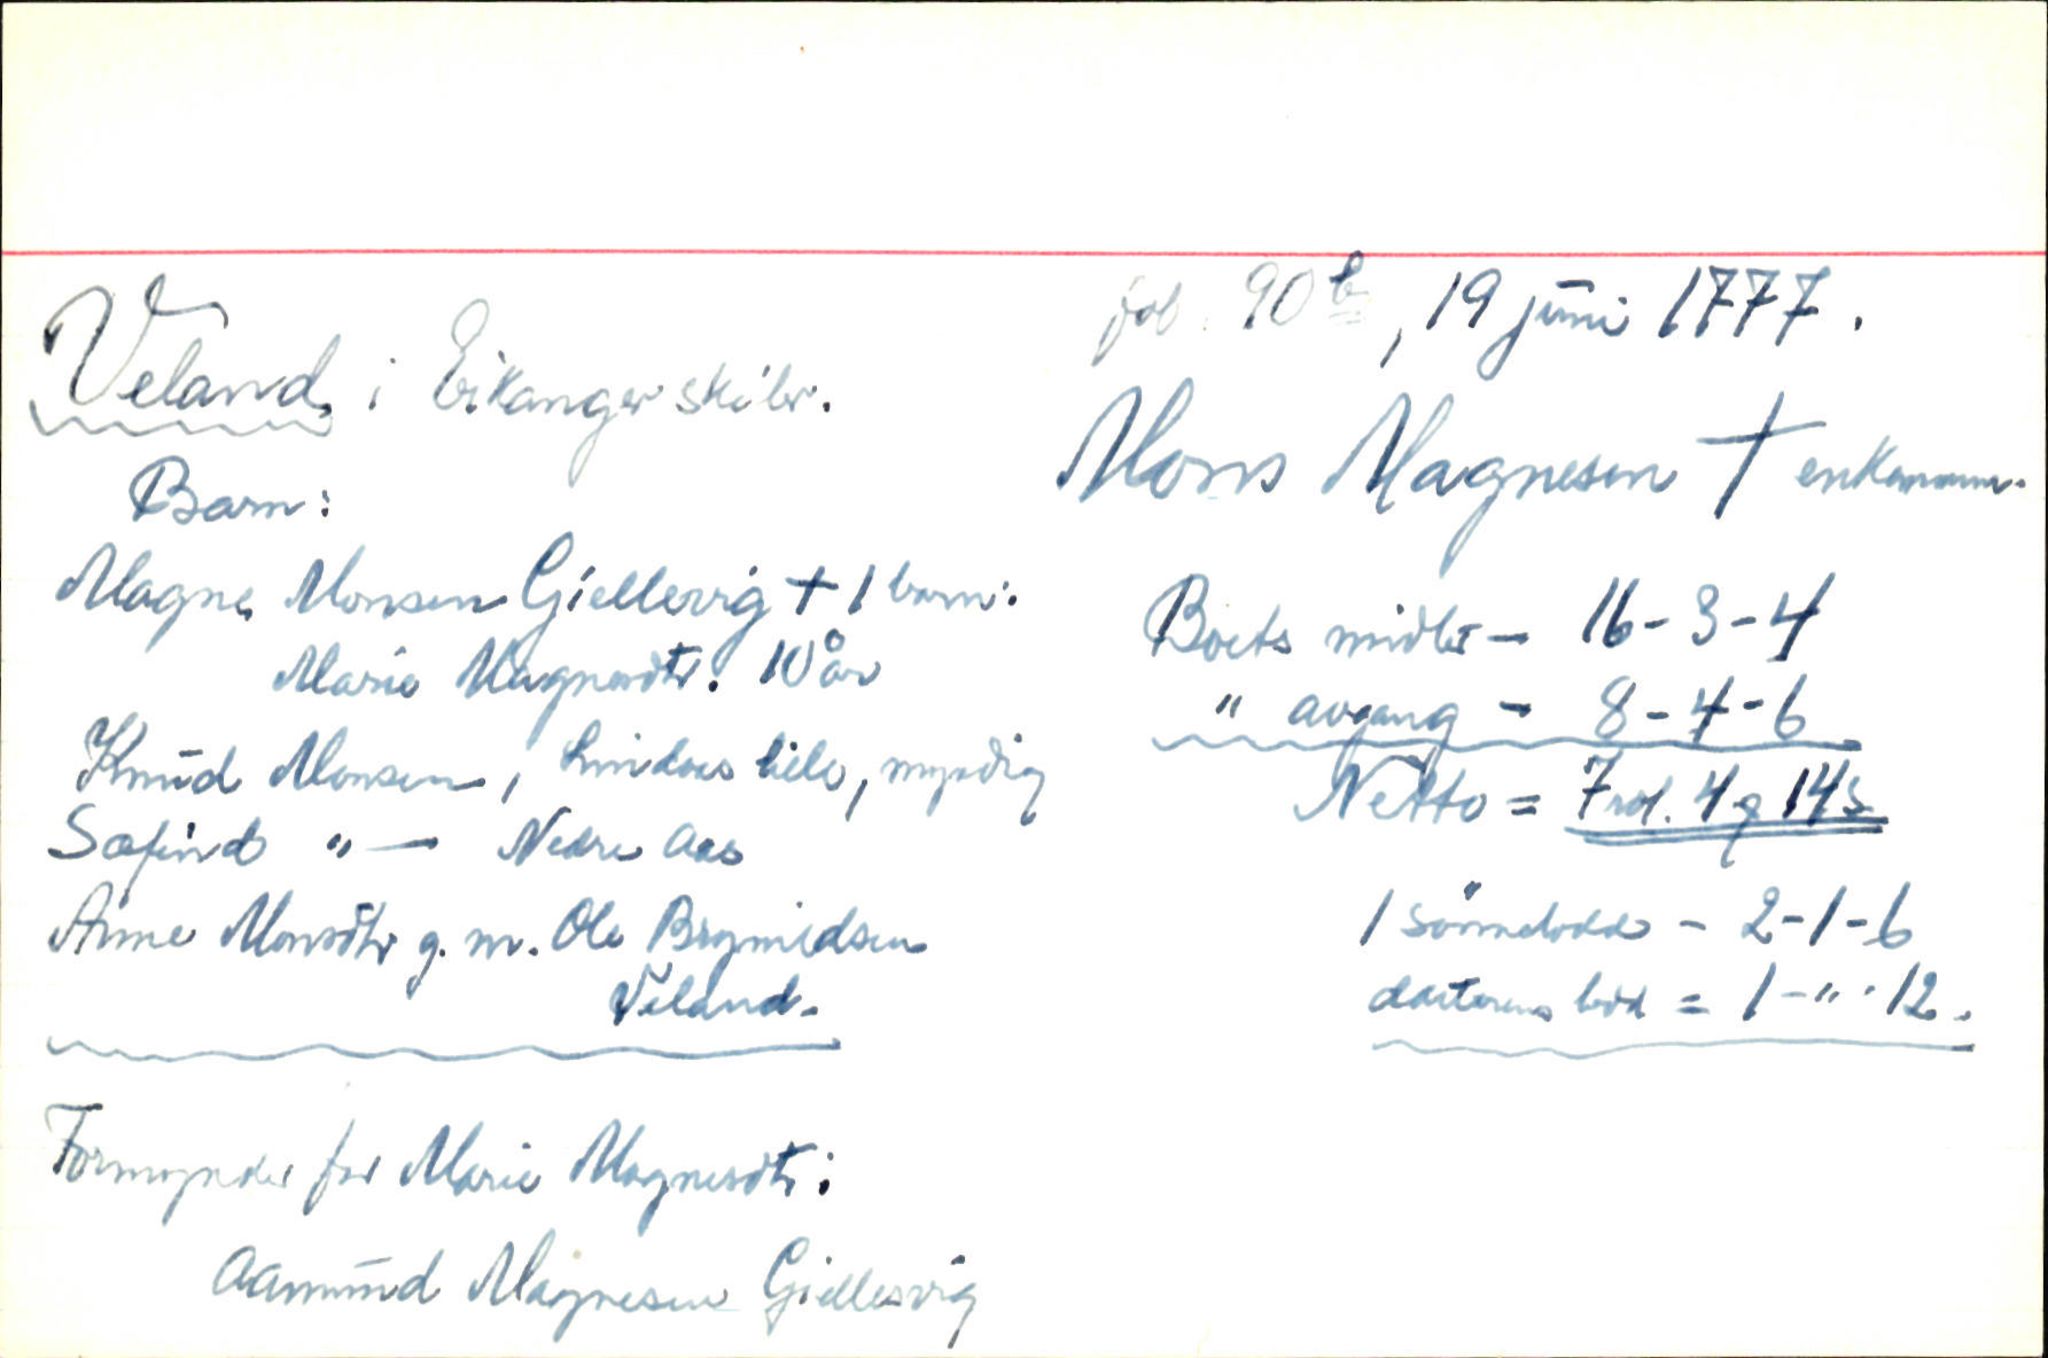 fol. 90 b, 19 juni 1777.
Veland, i Eikanger skibr.
Mons Magnesen † enkemann.
Barn:
Magne Monsen Giellesvig † 1 barn:
Marie Magnesdtr. 10 år
Knud Monsen, Lindaas lille, myndig
Sæfind " — Nedre Aas
Anne Monsdtr g. m. Ole Brynildsen
Veland.
Boets midler — 16 - 3 - 4
" avgang — 8 - 4 - 6
Netto = 7 rd. 4 ƒ 14 s
1 sönnelodd — 2 - 1 - 6
datterens lod = 1 - " - 12.
Formynder for Marie Magnesdtr:
Aamund Magnesen Giellesvig